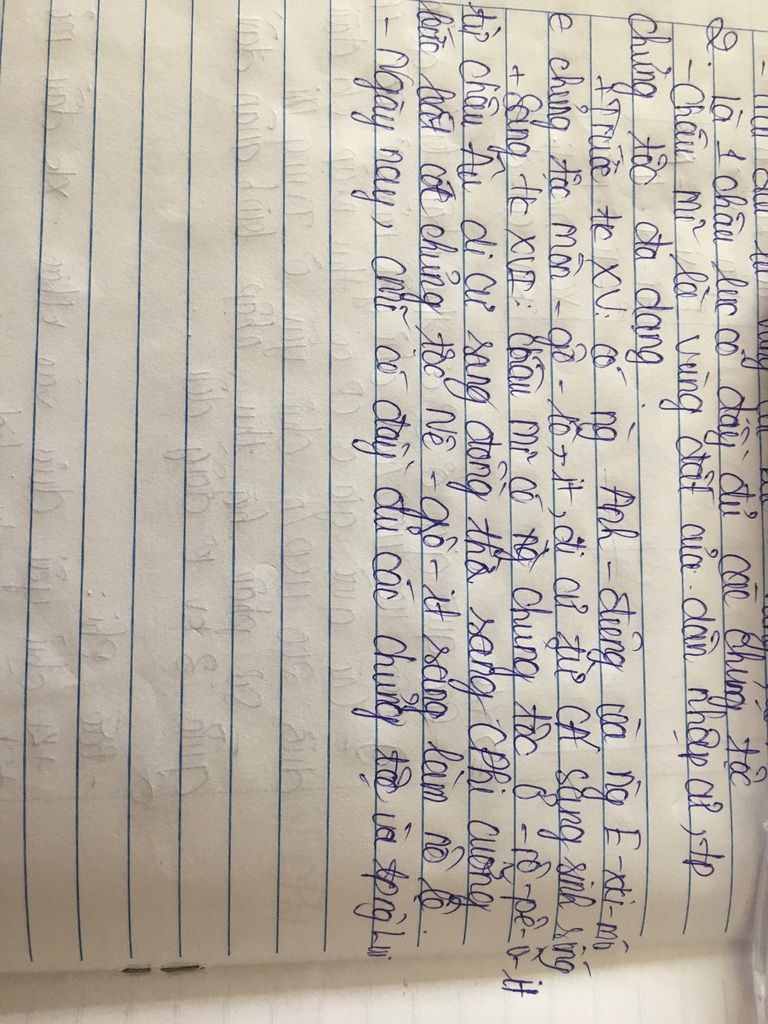 2. Là 1 châu lục có đầy đủ các chủng tộc
- Châu mĩ là vùng đất của dân nhập cư, tp
chủng tộc đa dạng
+ Trước tk XV: có ng Anh-điêng và ng E-xki-mô
e chủng tộc môn-gô-lô-it, di cư từ CÁ sang sinh sống
+ Sang tk XVI: châu mĩ có chủng tộc Ơ-rô-pê-ô-it
từ châu Âu di cư sang đồng thời sang CPhi cưỡng
bức bắt các chủng tộc Nê-grô-it sang làm nô lệ.
- Ngày nay, CMĩ có đầy đủ các chủng tộc và